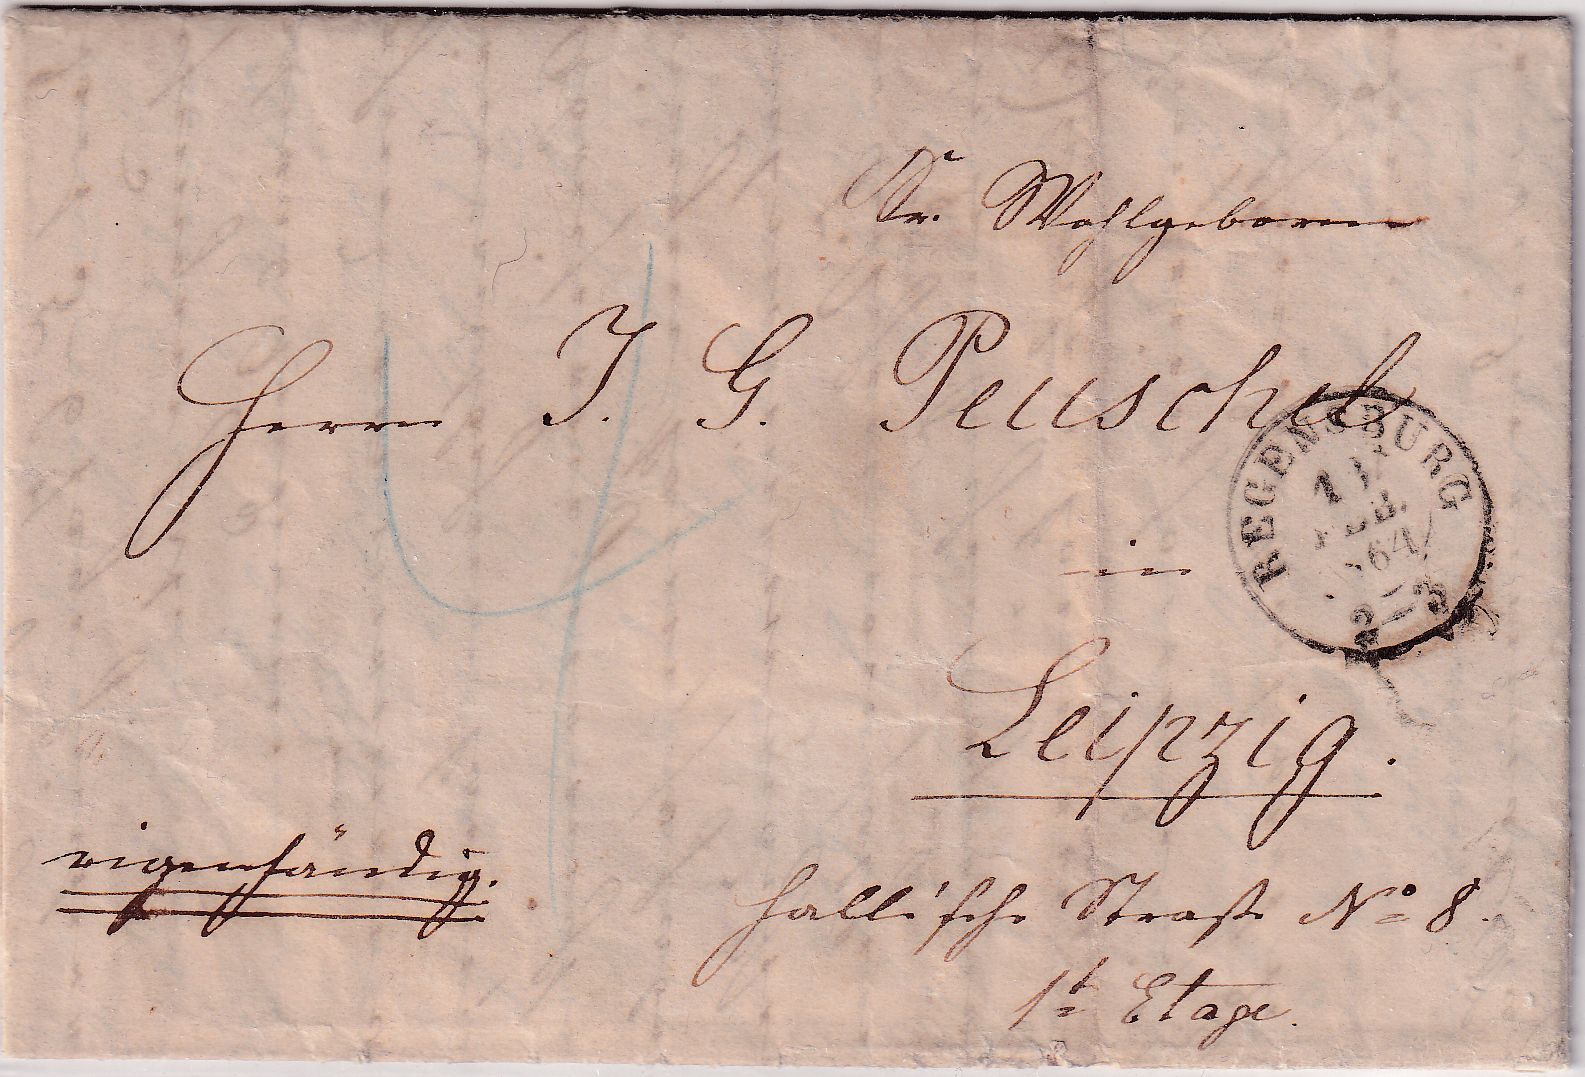 Sr. Wohlgeboren
Herrn J. G. Peuschel
REGENSBURG
FEB.
1864
2-3
in
Leipzig.
eigenhändig.
Hallische Straße No 8.
1te Etage.
4